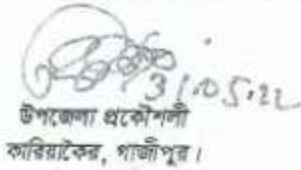 31.05.22
উপজেলা প্রকৌশলী
কালিয়াকৈর, গাজীপুর।